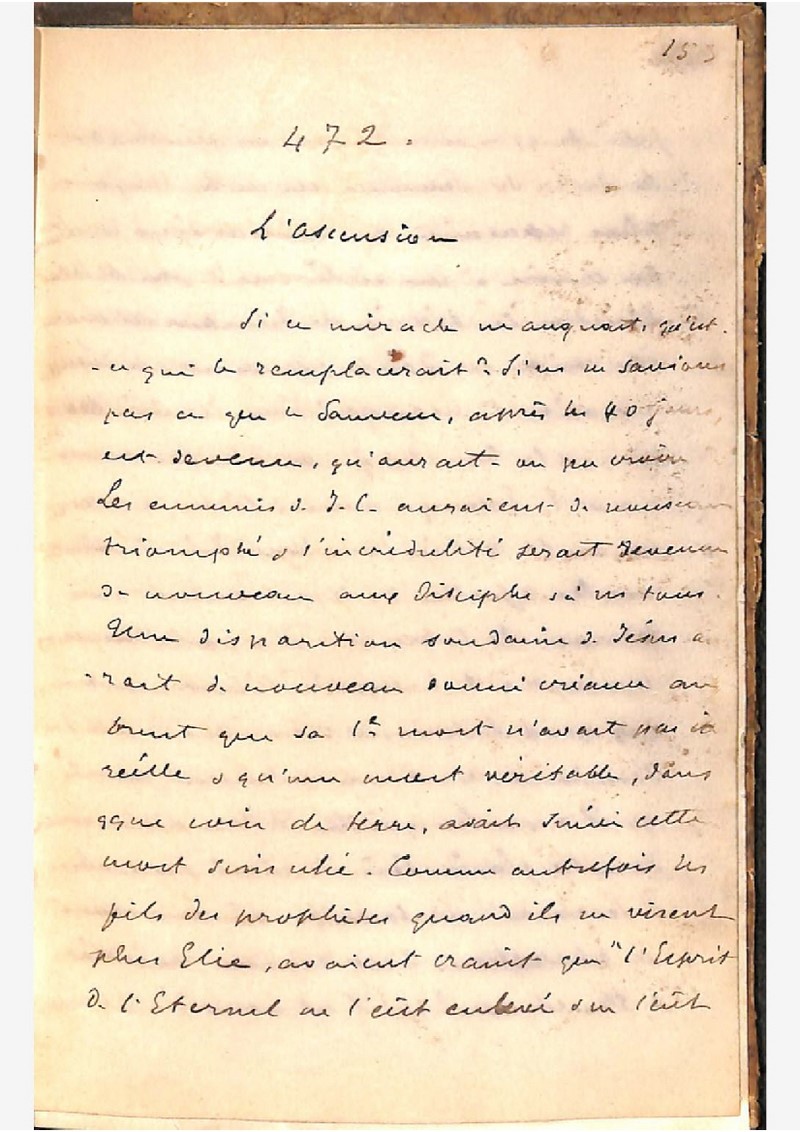 153
472.
L'ascension
Si ce miracle manquait, qu'est-
-ce qui le remplacerait? Si ns ne savions
pas ce que le Sauveur, après les 40 jours,
est devenu, qu'aurait-on pu croire
Les ennemis d. J. C. auraient de nouveau
triomphé & l'incrédulité serait revenue
de nouveau aux disciples & à ns tous.
Une disparition soudaine d. Jésus au
-rait de nouveau donné créance au
bruit que sa 1e mort n'avait pas été
réelle & qu'une mort véritable, dans
qque coin de terre, avait suivi cette
mort simulée. Comme autrefois les
fils des prophètes quand ils ne virent
plus Elie, avaient craint que "l'Esprit
d. l'Eternel ne l'eût enlevé & ne l'eût